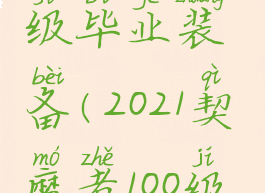 级毕业装
bèi qì
备(2021契
mó zhě jí
魔者100级